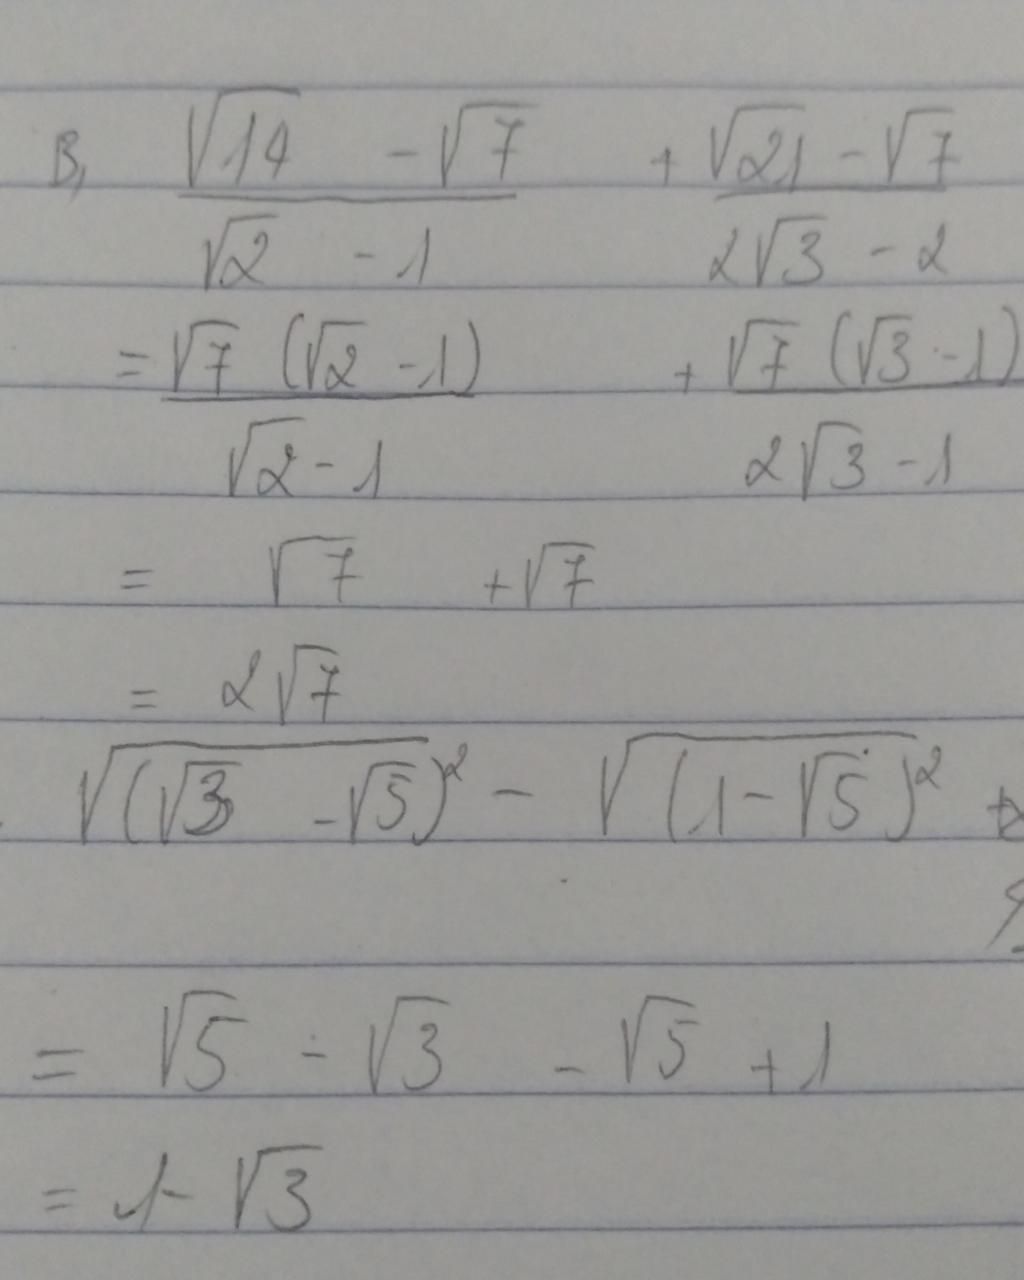 B, (√14 - √7)/(√2 - 1) + (√21 - √7)/(2√3 - 2)
= (√7 (√2 - 1))/(√2 - 1) + (√7 (√3 - 1))/(2√3 - 1)
= √7 + √7
= 2√7
√(√3 - √5)² - √(1 - √5)²
= √5 - √3 - √5 + 1
= 1 - √3